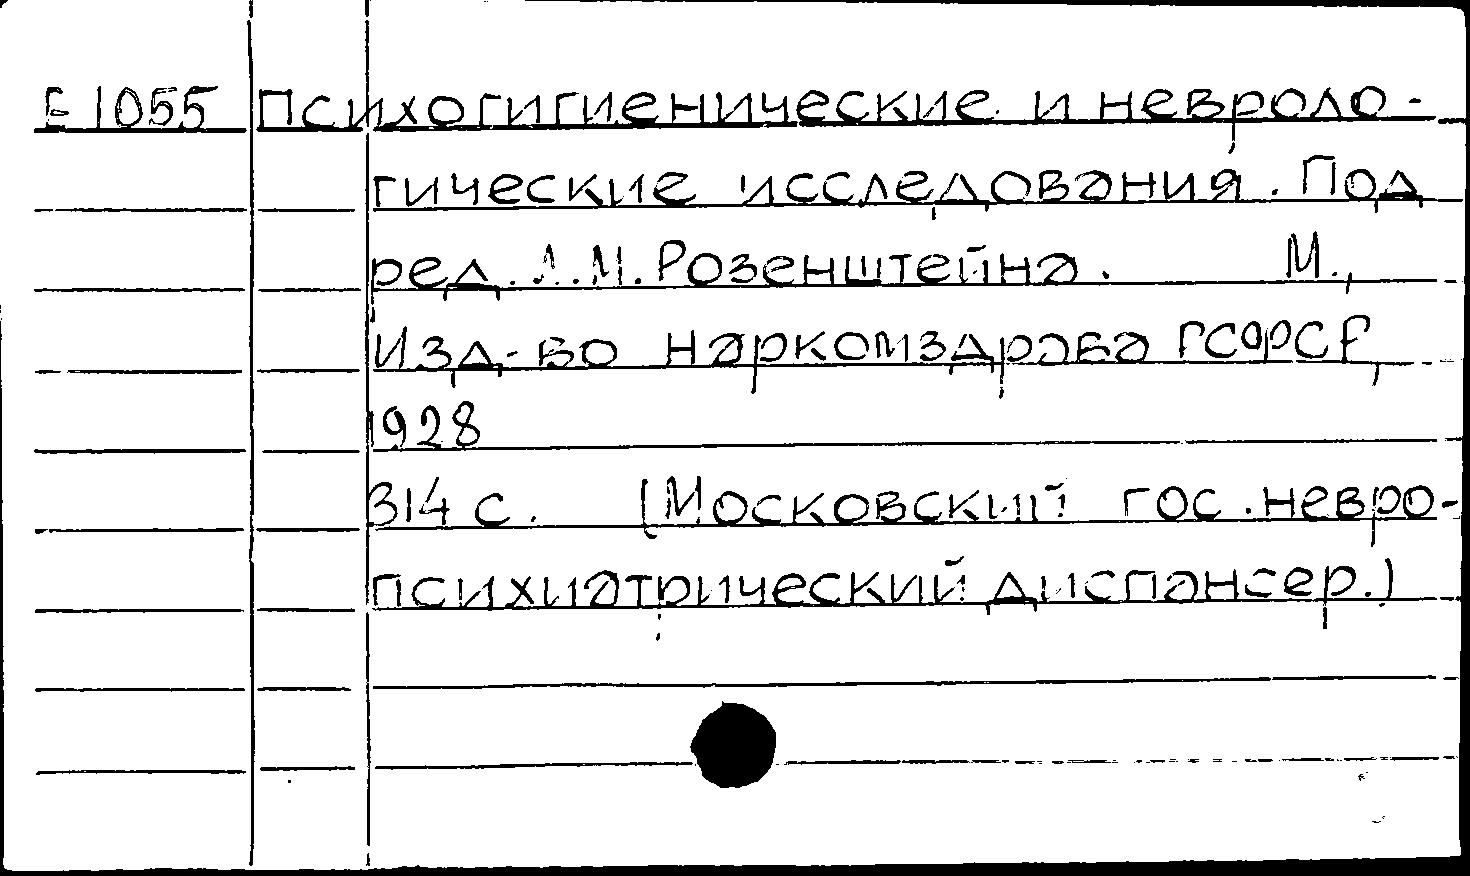 Е 1055 Психогигиенические и невроло-
гические исследования. Под
ред. Л.М. Розенштейна. М.,
Изд-во наркомздрава РСФСР,
1928
314 с. (Московский гос. невро-
психиатрический диспансер.)